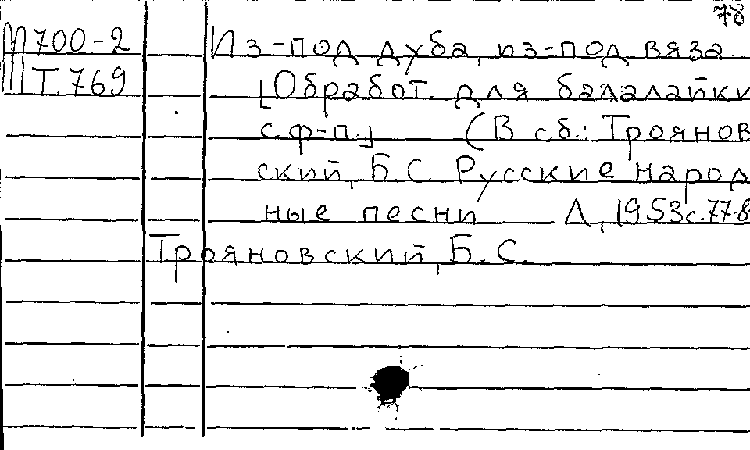 78
М700-2 Из-под дуба, из-под вяза
Т.769 [Обработ. для балалайки
с ф-п.] (В сб.: Троянов
ский, Б.С. Русские народ
ные песни Л., 1953 с.77-8
Трояновский, Б.С.